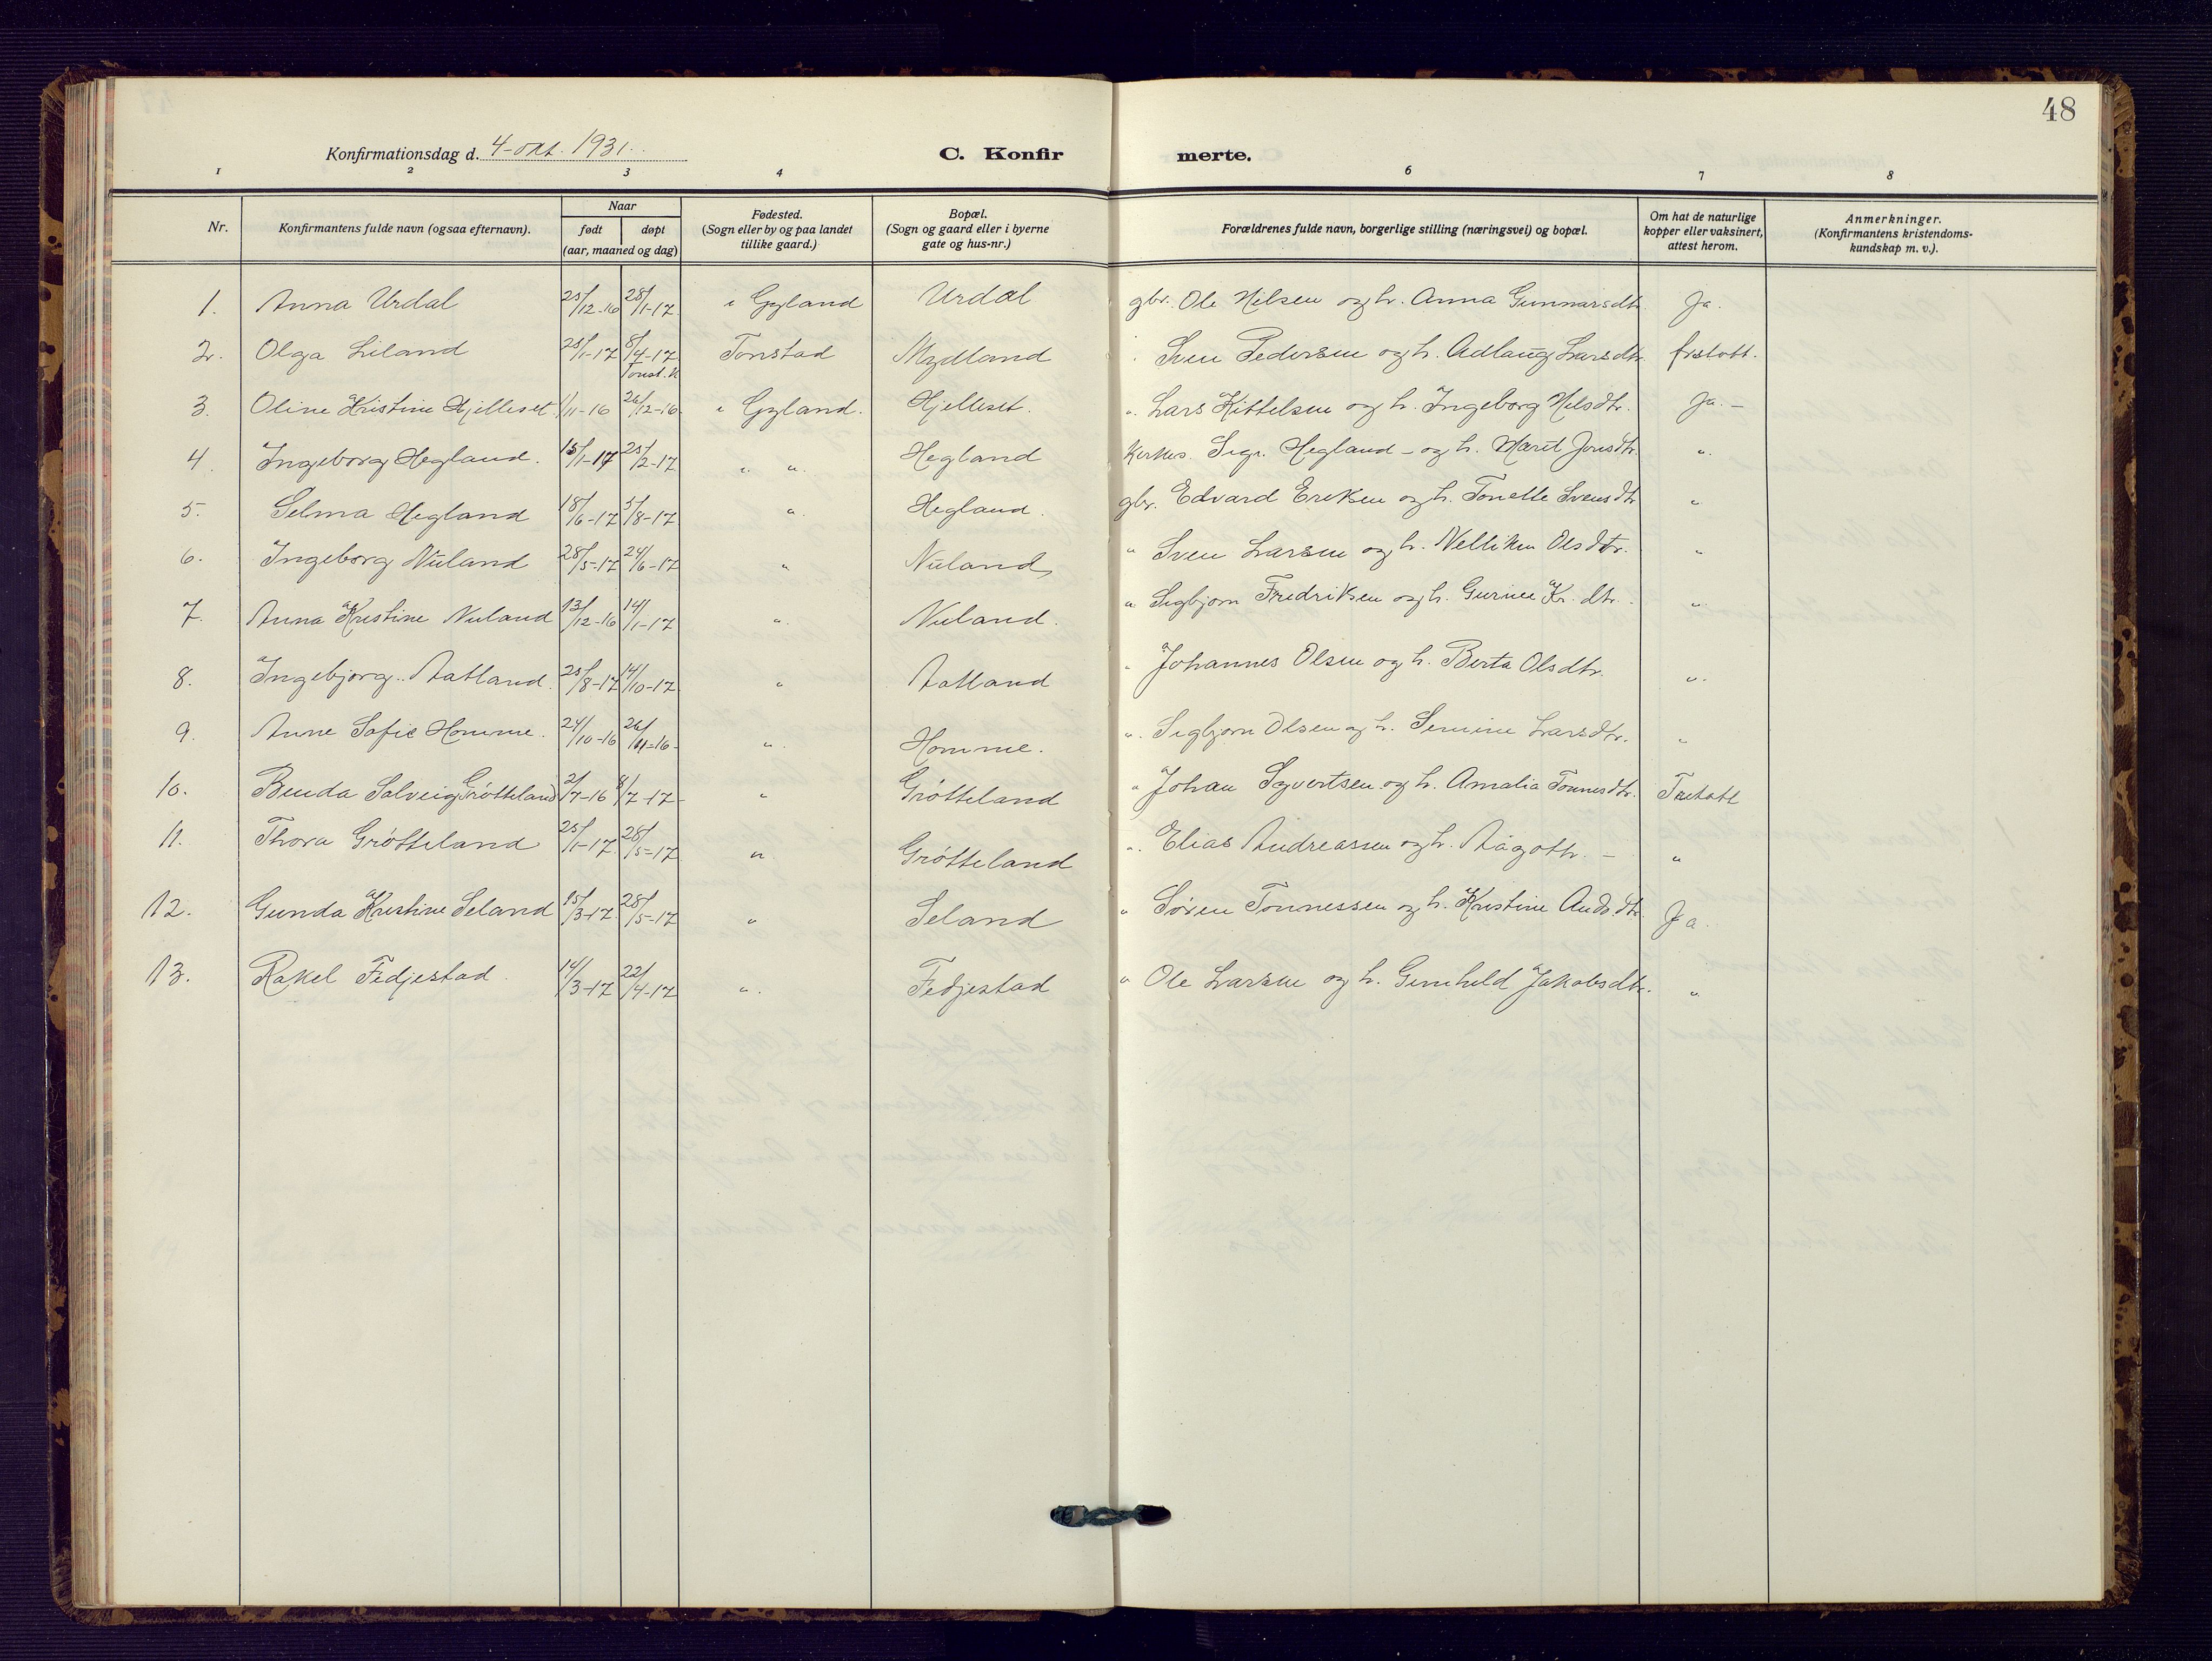 48
Konfirmationsdag d. 4-okt. 1931.
C. Konfir merte.
1 2 3 4 6 7 8
Nr.
Konfirmantens fulde navn (ogsaa efternavn).
Naar
født døpt
(aar, maaned og dag)
Fødested.
(Sogn eller by og paa landet
tillike gaard.)
Bopæl.
(Sogn og gaard eller i byerne
gate og hus-nr.)
Forældrenes fulde navn, borgerlige stilling (næringsvei) og bopæl.
Om hat de naturlige
kopper eller vaksinert,
attest herom.
Anmerkninger.
(Konfirmantens kristendoms-
kundskap m. v.).
1. Anna Urdal 25/12-16 28/1-17 i Gyland Urdal gbr. Ole Nilsen og h. Anna Gunnarsdtr. Ja.
2. Olga Liland 25/1-17 8/4-17 Tonstad Mydland Sven Pedersen og h. Adlaug Larsdtr.
Tonst. k
3. Oline Kristine Hjelleset 1/11-16 26/12-16 i Gyland. Hjelleset. " Lars Kittelsen og h. Ingeborg Nilsdtr. Ja. -
4. Ingeborg Hegland. 15/1-17 25/2-17 " " Hegland Kirkes. Sigv. Hegland - og h. Marit Jonsdtr. "
5. Selma Hegland 18/6-17 5/8-17 " Hegland. gbr. Edvard Eriksen og h. Tonette Svensdtr "
6. Ingeborg Nuland 28/5-17 24/6-17 " Nuland " Sven Larsen og h. Nelliken Olsdtr. "
7. Anna Kristine Nuland 13/12-16 14/1-17 " Nuland. " Sigbjørn Fredriksen og h. Gurine Kr. dtr. "
8. Ingebjorg Aatland. 25/8-17 14/10-17 " Aatland " Johannes Olsen og h. Berta Olsdtr. "
9. Anne Sofie Homme. 24/10-16 26/11-16 " Homme. " Sigbjorn Olsen og h. Semine Larsdtr. "
10. Benda Solveig Grøtteland 2/7-16 8/7-17 " Grøtteland " Johan Syvertsen og h. Amalia Tonnesdtr.
11. Thora Grøtteland 25/1-17 28/5-17 " Grøtteland " Elias Andreassen og h. Aagoth. - "
12. Gunda Kristine Seland 15/3-17 28/5-17 " Seland " Søren Tonnessen og h. Kristine Ands.dtr. Ja.
13. Rakel Fedjestad 14/3-17 22/4-17 " Fedjestad " Ole Larsen og h. Gunhild Jakobsdtr. "